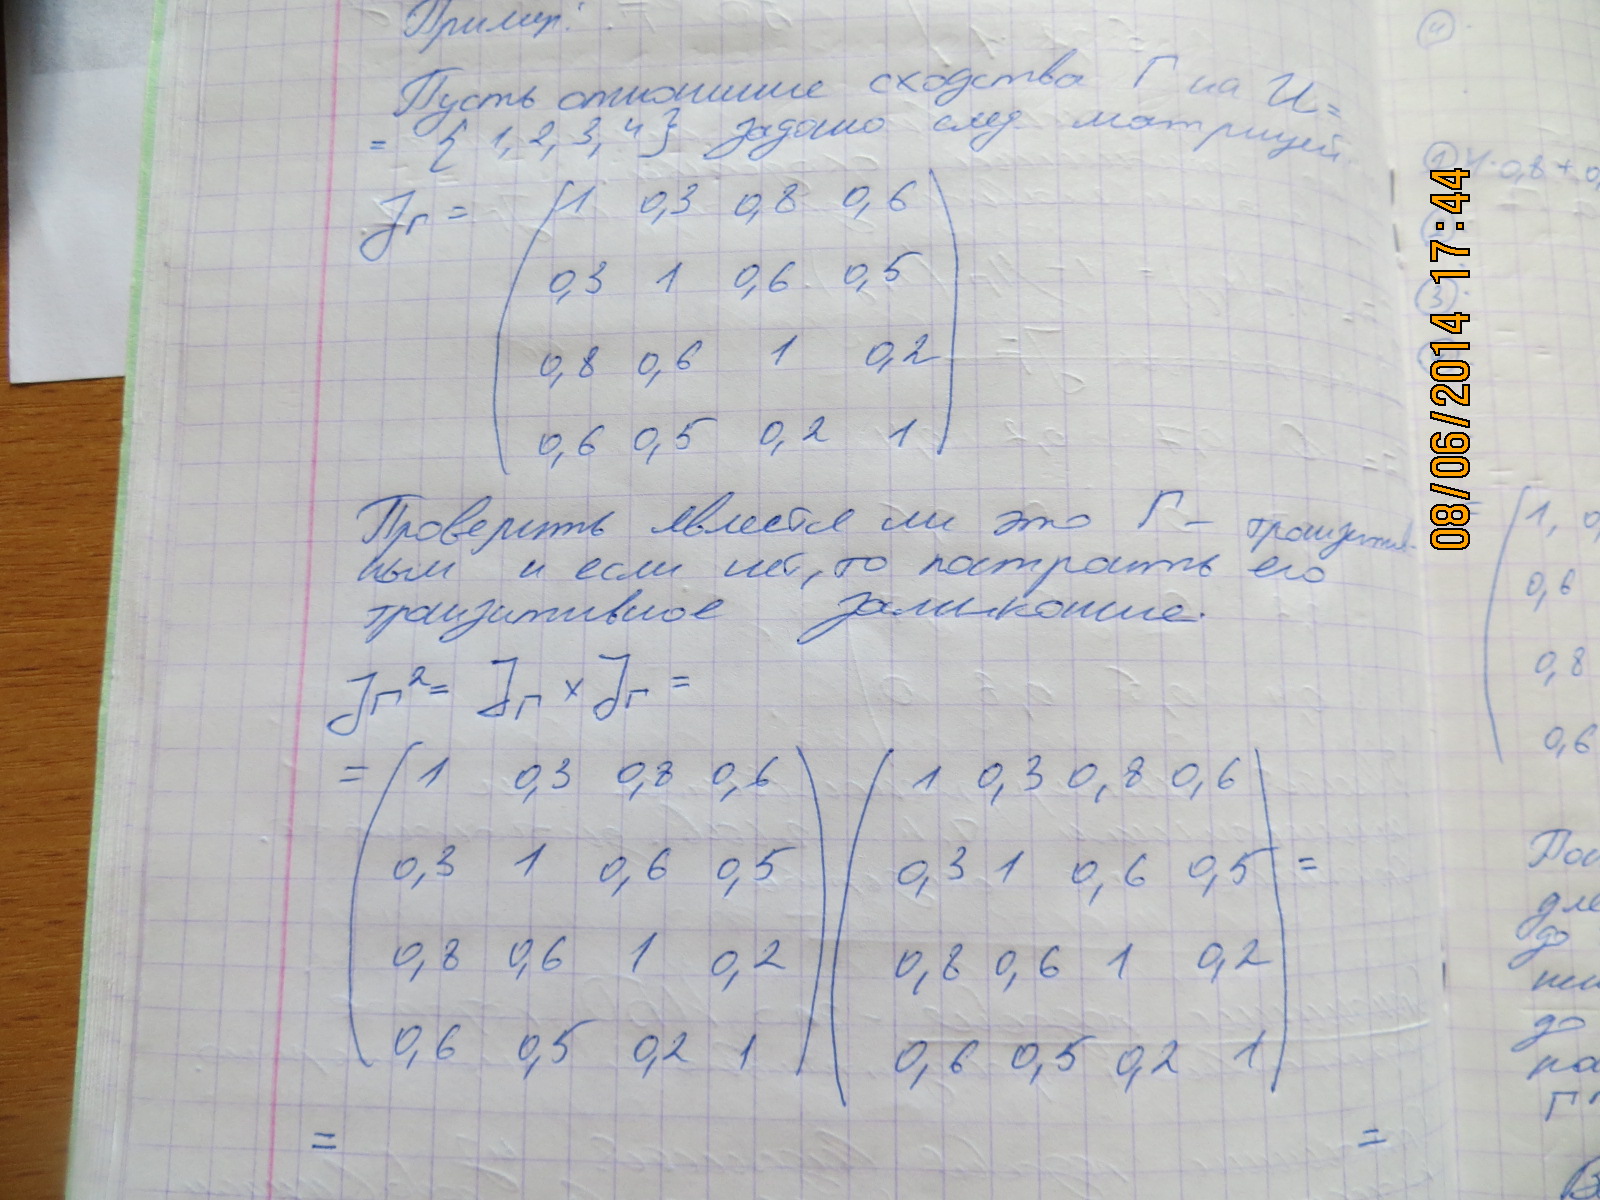 Пример:
Пусть отношение сходства Г на U =
= { 1, 2, 3, 4 } задано след. матрицей.
J_Г = ( 1 0,3 0,8 0,6
0,3 1 0,6 0,5
0,8 0,6 1 0,2
0,6 0,5 0,2 1 )
Проверить является ли это Г – транзитив-
ным и если нет, то построить его
транзитивное замыкание.
J_Г² = J_Г × J_Г =
= ( 1 0,3 0,8 0,6 ) ( 1 0,3 0,8 0,6 )
0,3 1 0,6 0,5 0,3 1 0,6 0,5 =
0,8 0,6 1 0,2 0,8 0,6 1 0,2
0,6 0,5 0,2 1 0,6 0,5 0,2 1
= =
4
1 0,8 +
3
1, 0,
0,6
0,8
0,6
до
до
Г
08/06/2014 17:44